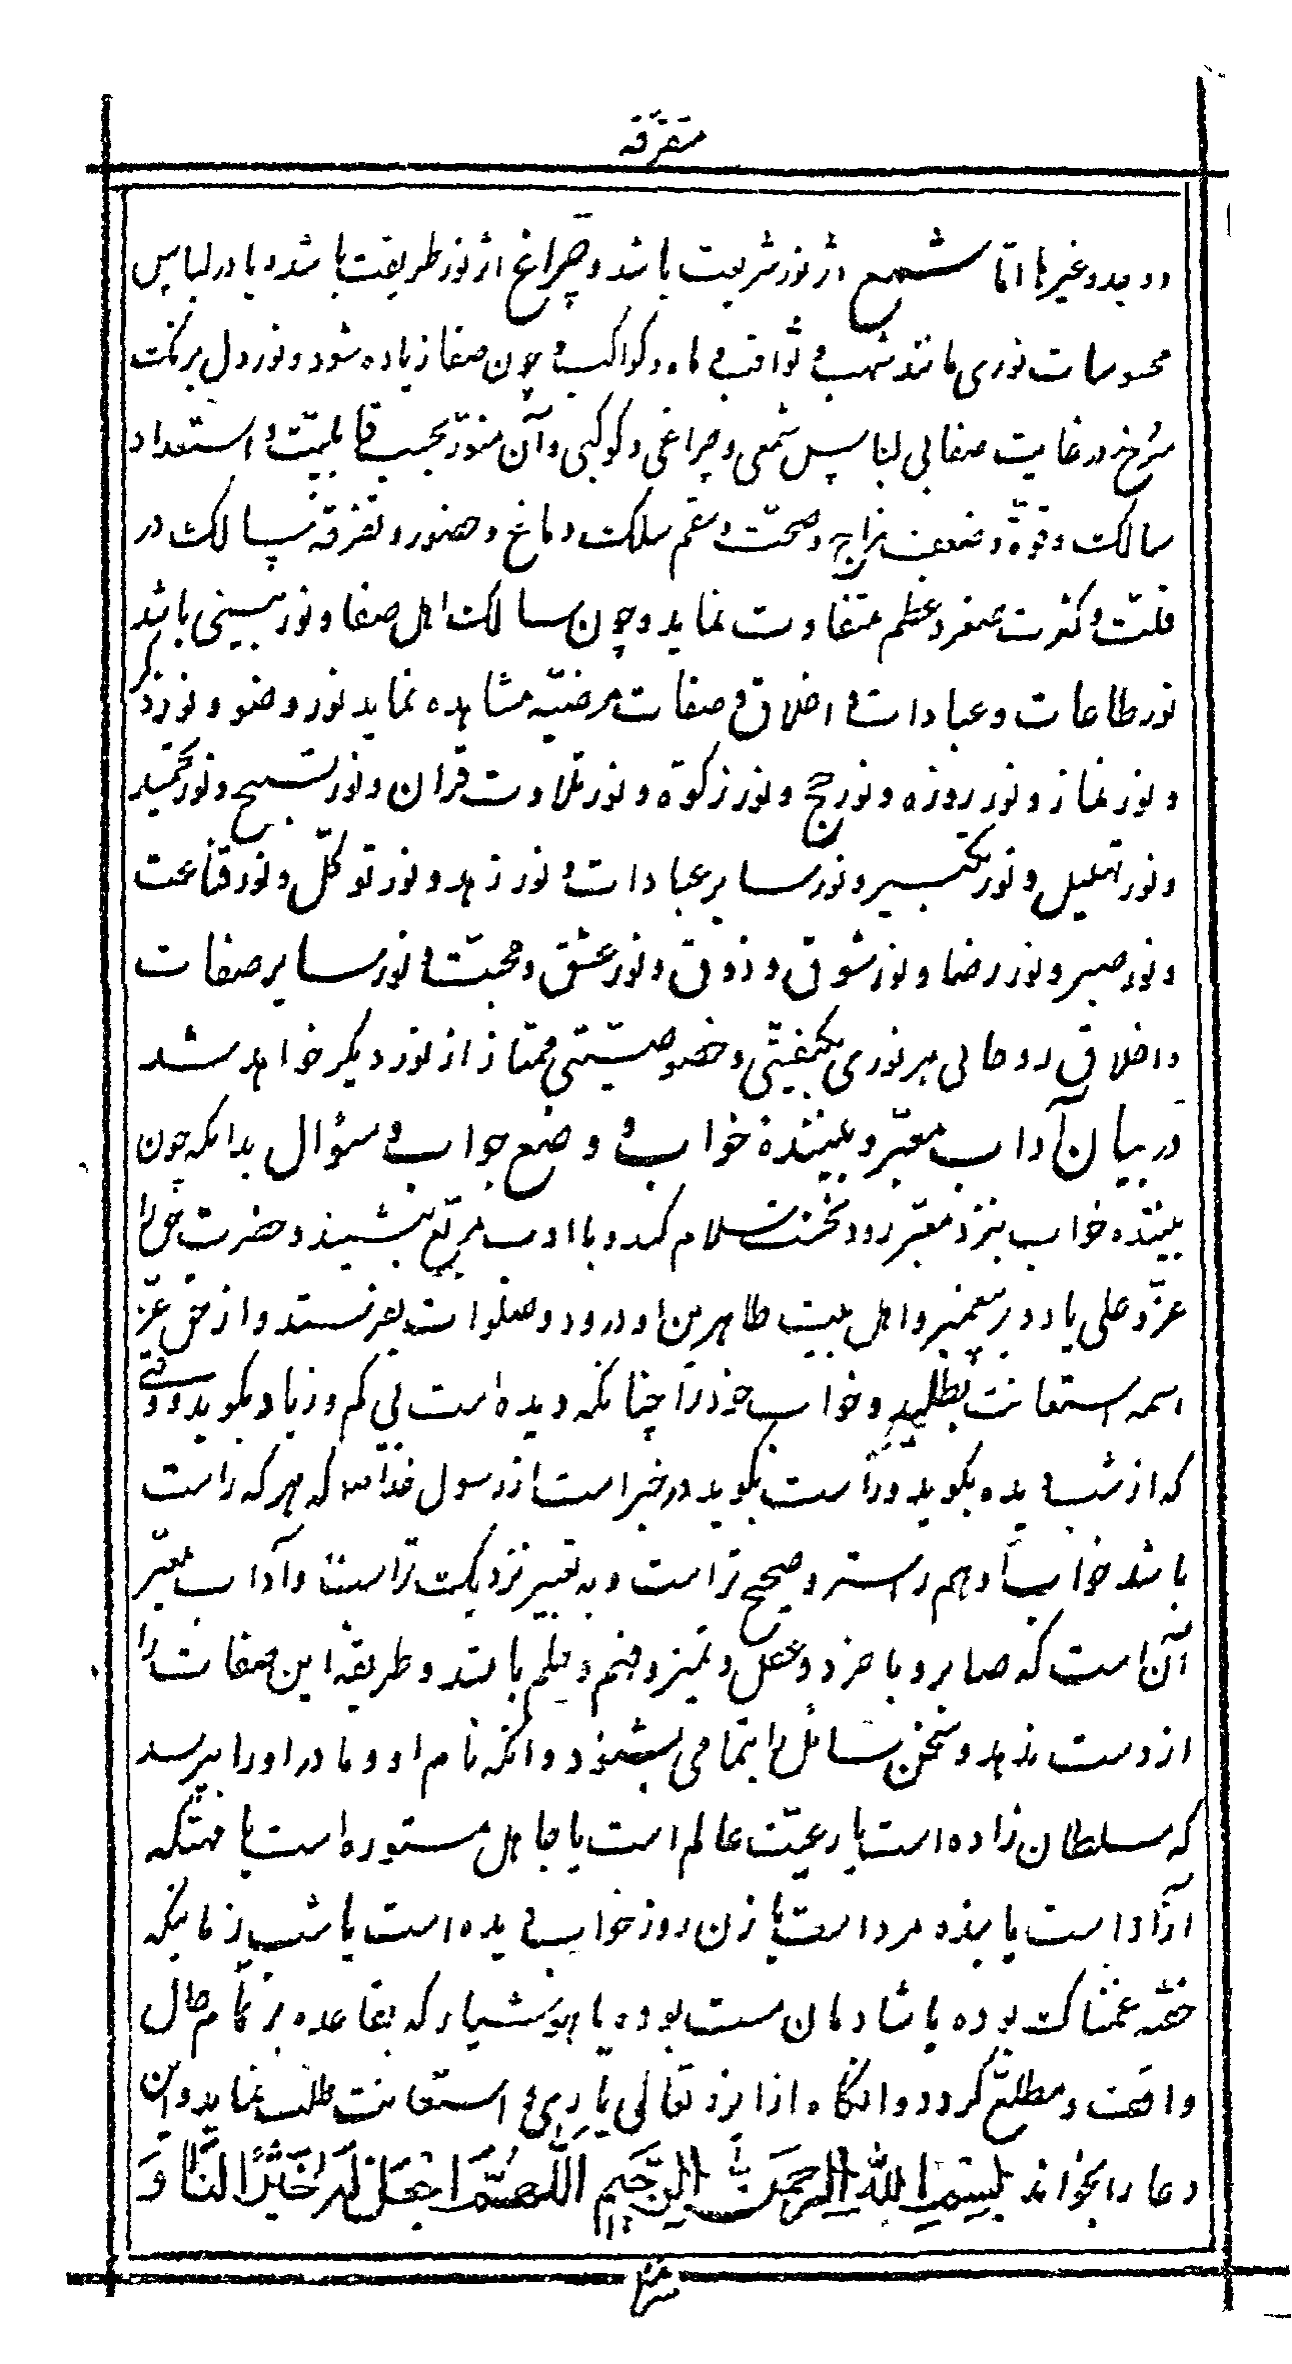 متفرّقه
و دیده و غیرها امّا شمع از نور شریعت باشد و چراغ از نور طریقت باشد و یا در لباس
محسوسات نوری مانند شهب و ثواقب و ماه و کواکب و چون صفا زیاده شود و نور دل برنکت
سُرخ در غایت صفا بی لباس شمعی و چراغی و کوکبی و آن منوّر بحسب قابلیّت و استعداد
سالک و قوّة و ضعف مزاج و صحّت و سقم سلک دماغ و حضور و تفرقه سالک در
قلّت و کثرت صغر و عظم متفاوت نماید و چون سالک اهل صفا و نور بینی باشد
نور طاعات و عبادات و اخلاق و صفات مرضیّه مشاهده نماید نور وضو و نور ذکر
و نور نماز و نور روزه و نور حج و نور زکوة و نور تلاوت قران و نور تسبیح و نور تحمید
و نور تهلیل و نور تکبیر و نور سایر عبادات و نور زهد و نور توکّل و نور قناعت
و نور صبر و نور رضا و نور شوق و ذوق و نور عشق و محبّت و نور سایر صفات
و اخلاق روحانی هر نوری بکیفیّتی و خصوصیّتی ممتاز از نور دیکر خواهد شد
در بیان آداب معبّر و بینندهٔ خواب و وضع جواب و سؤال بدانکه چون
بیننده خواب بنزد معبّر رود نخست سلام کند و با ادب مربّع بنشیند و حضرت حق را
عزّ و علی یاد و بر پیغمبر و اهل بیت طاهرین او درود و صلوات بفرستد و از حق عزّ
اسمه استعانت بطلبد و خواب خود را چنانکه دیده است بی کم و زیاد بکوید و وقتی
که از شب دیده بکوید و راست بکوید در خبر است از رسول خدا ص که هر که راست
باشد خواب او هم راستر و صحیح تر است و به تعبیر نزدیکت تر است و آداب معبّر
آن است که صابر و با خرد و عقل و تمیز و فهم و حلم باشد و طریقه این صفات را
از دست ندهد و سخن سائل را بتمامی بشنود و انکه نام او و مادر او را بپرسد
که سلطان زاده است یا رعیّت عالم است یا جاهل مستوره است یا مهتکه
آزاد است یا بنده مرد است یا زن روز خواب دیده است یا شب زمانیکه
خفته غمناک بوده یا شادمان مست بوده یا هوشیار که بقاعده بر تمام حال
واقف و مطلّع کردد و انکاه از ایزد تعالی یاری و استعانت طلب نماید و این
دعا را بخواند بِسْمِ اللهِ الرَّحْمنِ الرَّحیمِ اَللّهُمَّ اجْعَلْ لَهُ خَیْرًا لَنا وَ